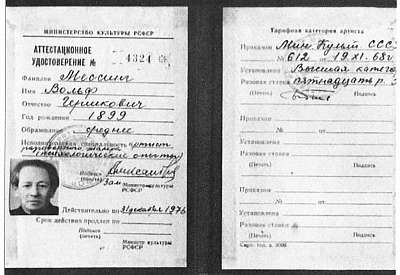 МИНИСТЕРСТВО КУЛЬТУРЫ РСФСР
АТТЕСТАЦИОННОЕ
УДОСТОВЕРЕНИЕ № 4324
Фамилия Мессинг
Имя Вольф
Отчество Гершкович
Год рождения 1899
Образование среднее
Исполнительская специальность артист
разговорного жанра
(психологические опыты)
Подпись
Зам. Министр культуры
РСФСР
Действительно по 31 декабря 1976
Срок действия продлен по
Подпись
(печать)
Министр культуры
РСФСР
Тарифная категория артиста
Приказом Мин. Культ. СССР
№ 612 от 19.XI.68г.
Установлена Высшая катего
Разовая ставка пятнадцать р.
(Печать) Подпись
Приказом
№ от
Установлена
Разовая ставка
(Печать) Подпись
Приказом
№ от
Установлена
Разовая ставка
(Печать) Подпись